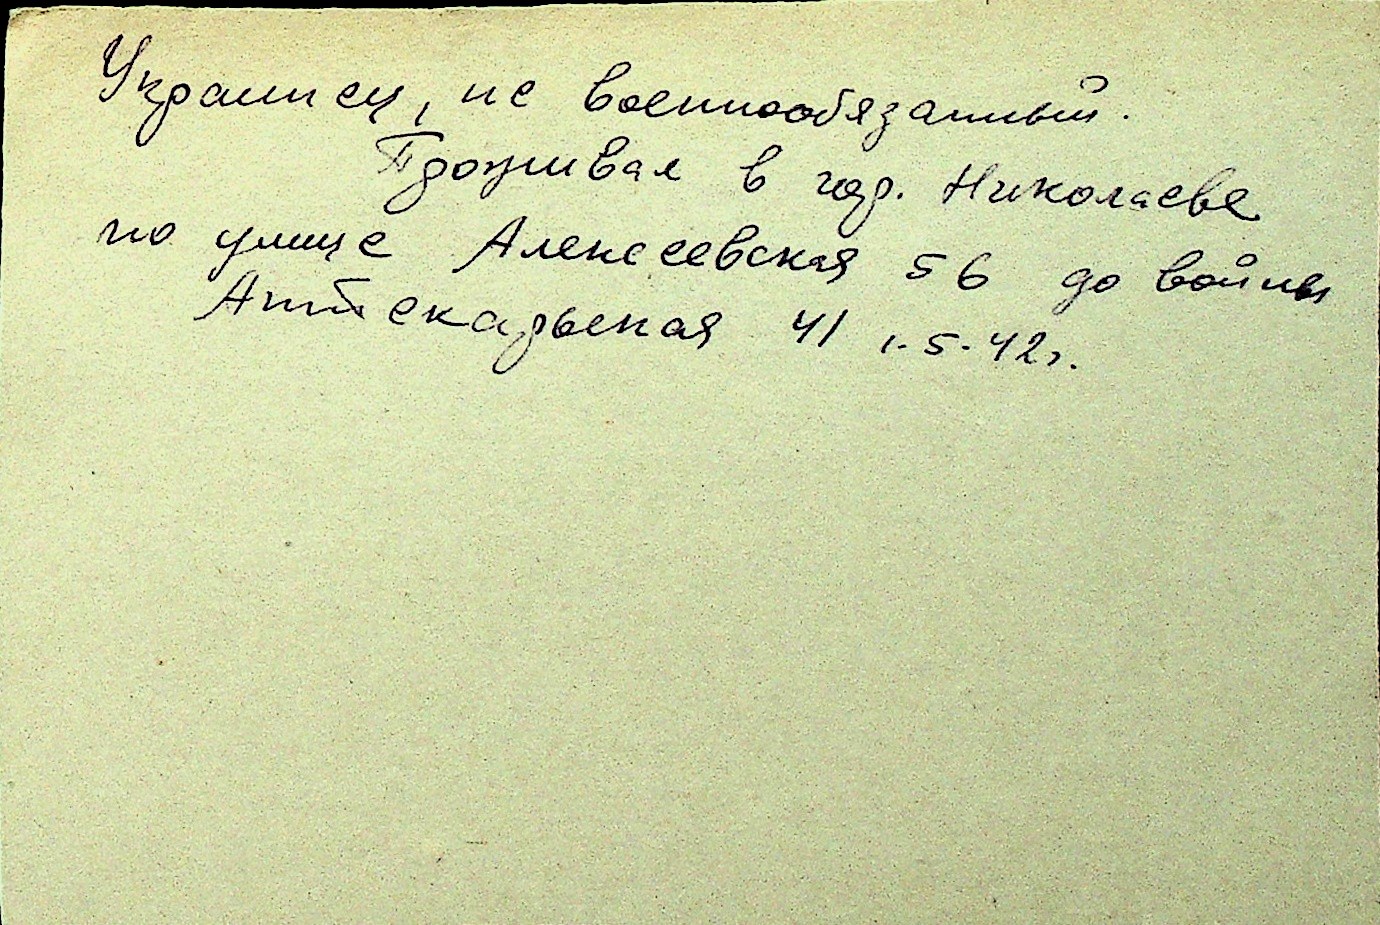 Украинец, не военнообязанный.
Проживал в гор. Николаеве
по улице Алексеевская 56 до войны
Аптекарьская 41 1.5.42г.